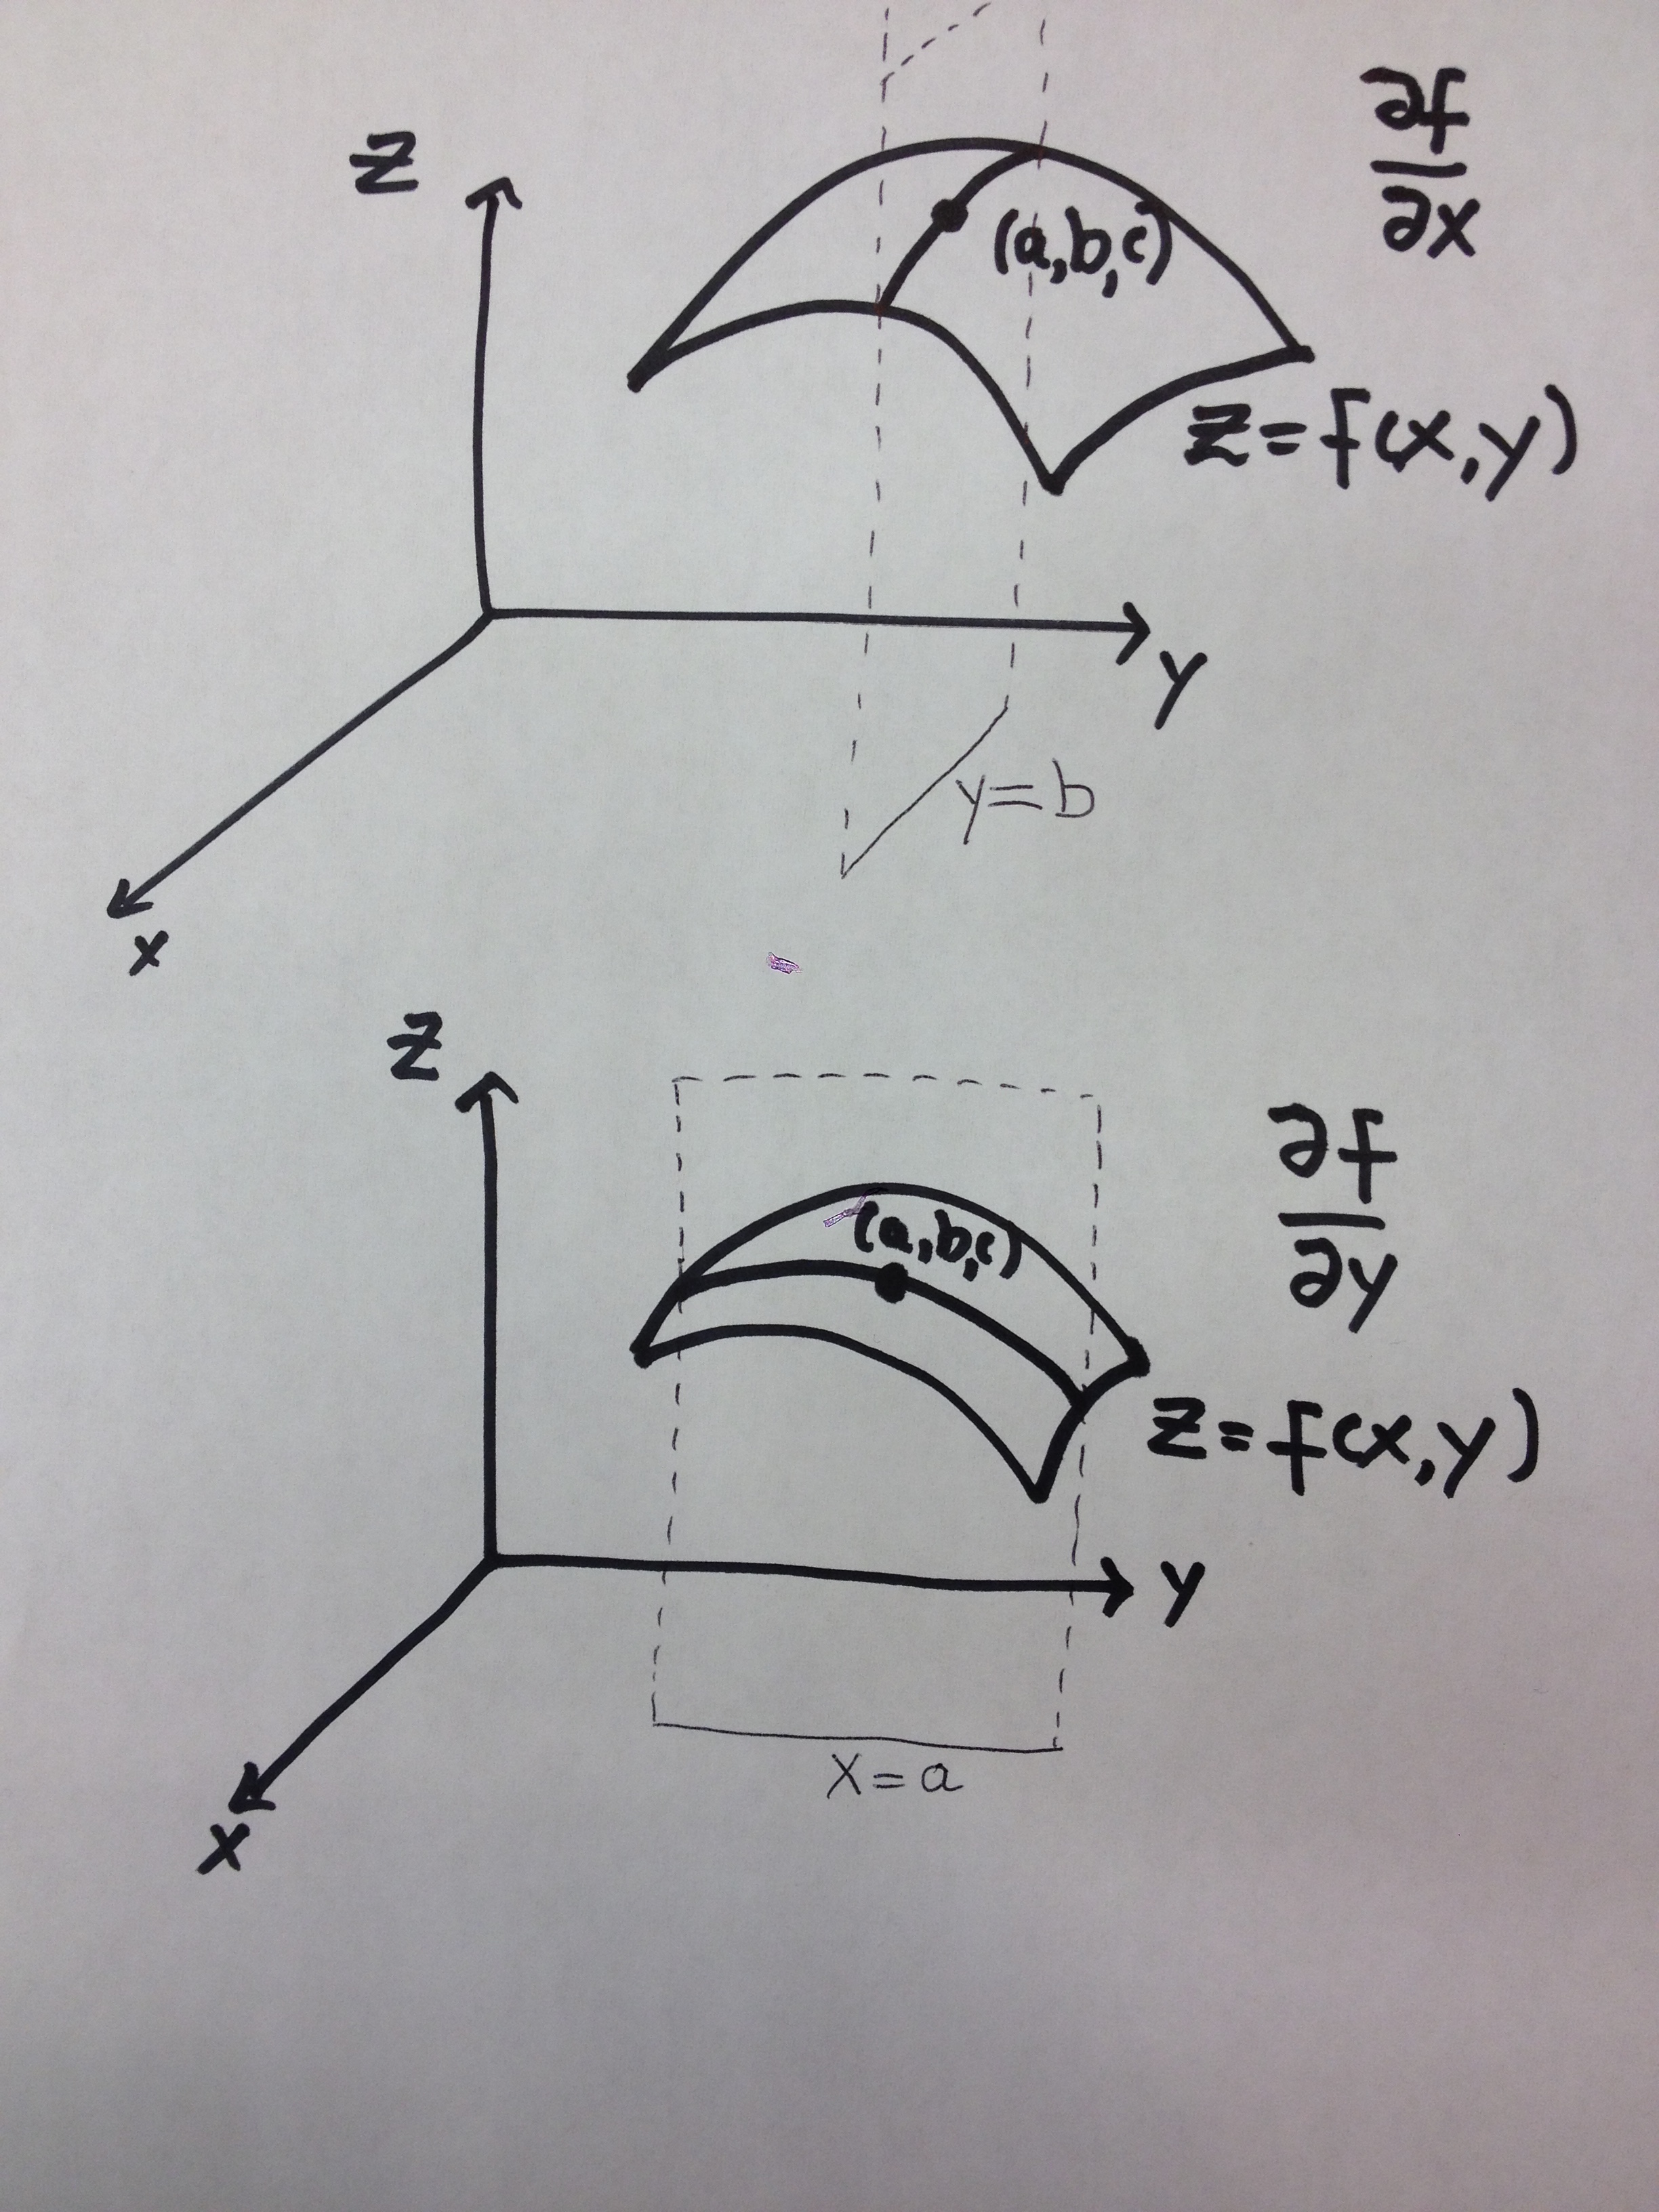 Z
∂f
∂x
(a,b,c)
z=f(x,y)
y
y=b
x
Z
∂f
∂y
(a,b,c)
z=f(x,y)
y
x=a
x